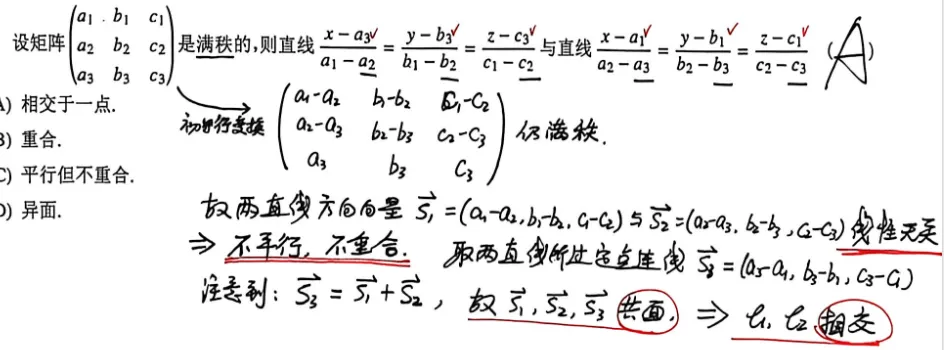 设矩阵 $\begin{pmatrix} a_1 & b_1 & c_1 \\ a_2 & b_2 & c_2 \\ a_3 & b_3 & c_3 \end{pmatrix}$ 是满秩的,则直线 $\frac{x-a_3}{a_1-a_2}=\frac{y-b_3}{b_1-b_2}=\frac{z-c_3}{c_1-c_2}$ 与直线 $\frac{x-a_1}{a_2-a_3}=\frac{y-b_1}{b_2-b_3}=\frac{z-c_1}{c_2-c_3}$ ( A )
A) 相交于一点.
B) 重合.
C) 平行但不重合.
D) 异面.
初等行变换 $\begin{pmatrix} a_1-a_2 & b_1-b_2 & c_1-c_2 \\ a_2-a_3 & b_2-b_3 & c_2-c_3 \\ a_3 & b_3 & c_3 \end{pmatrix}$ 仍满秩.
故两直线方向向量 $\vec{S_1}=(a_1-a_2, b_1-b_2, c_1-c_2)$ 与 $\vec{S_2}=(a_2-a_3, b_2-b_3, c_2-c_3)$ 线性无关
⇒ 不平行, 不重合. 取两直线所过定点连线 $\vec{S_3}=(a_3-a_1, b_3-b_1, c_3-c_1)$
注意到: $\vec{S_3}=\vec{S_1}+\vec{S_2}$, 故 $\vec{S_1}, \vec{S_2}, \vec{S_3}$ 共面. ⇒ $l_1, l_2$ 相交